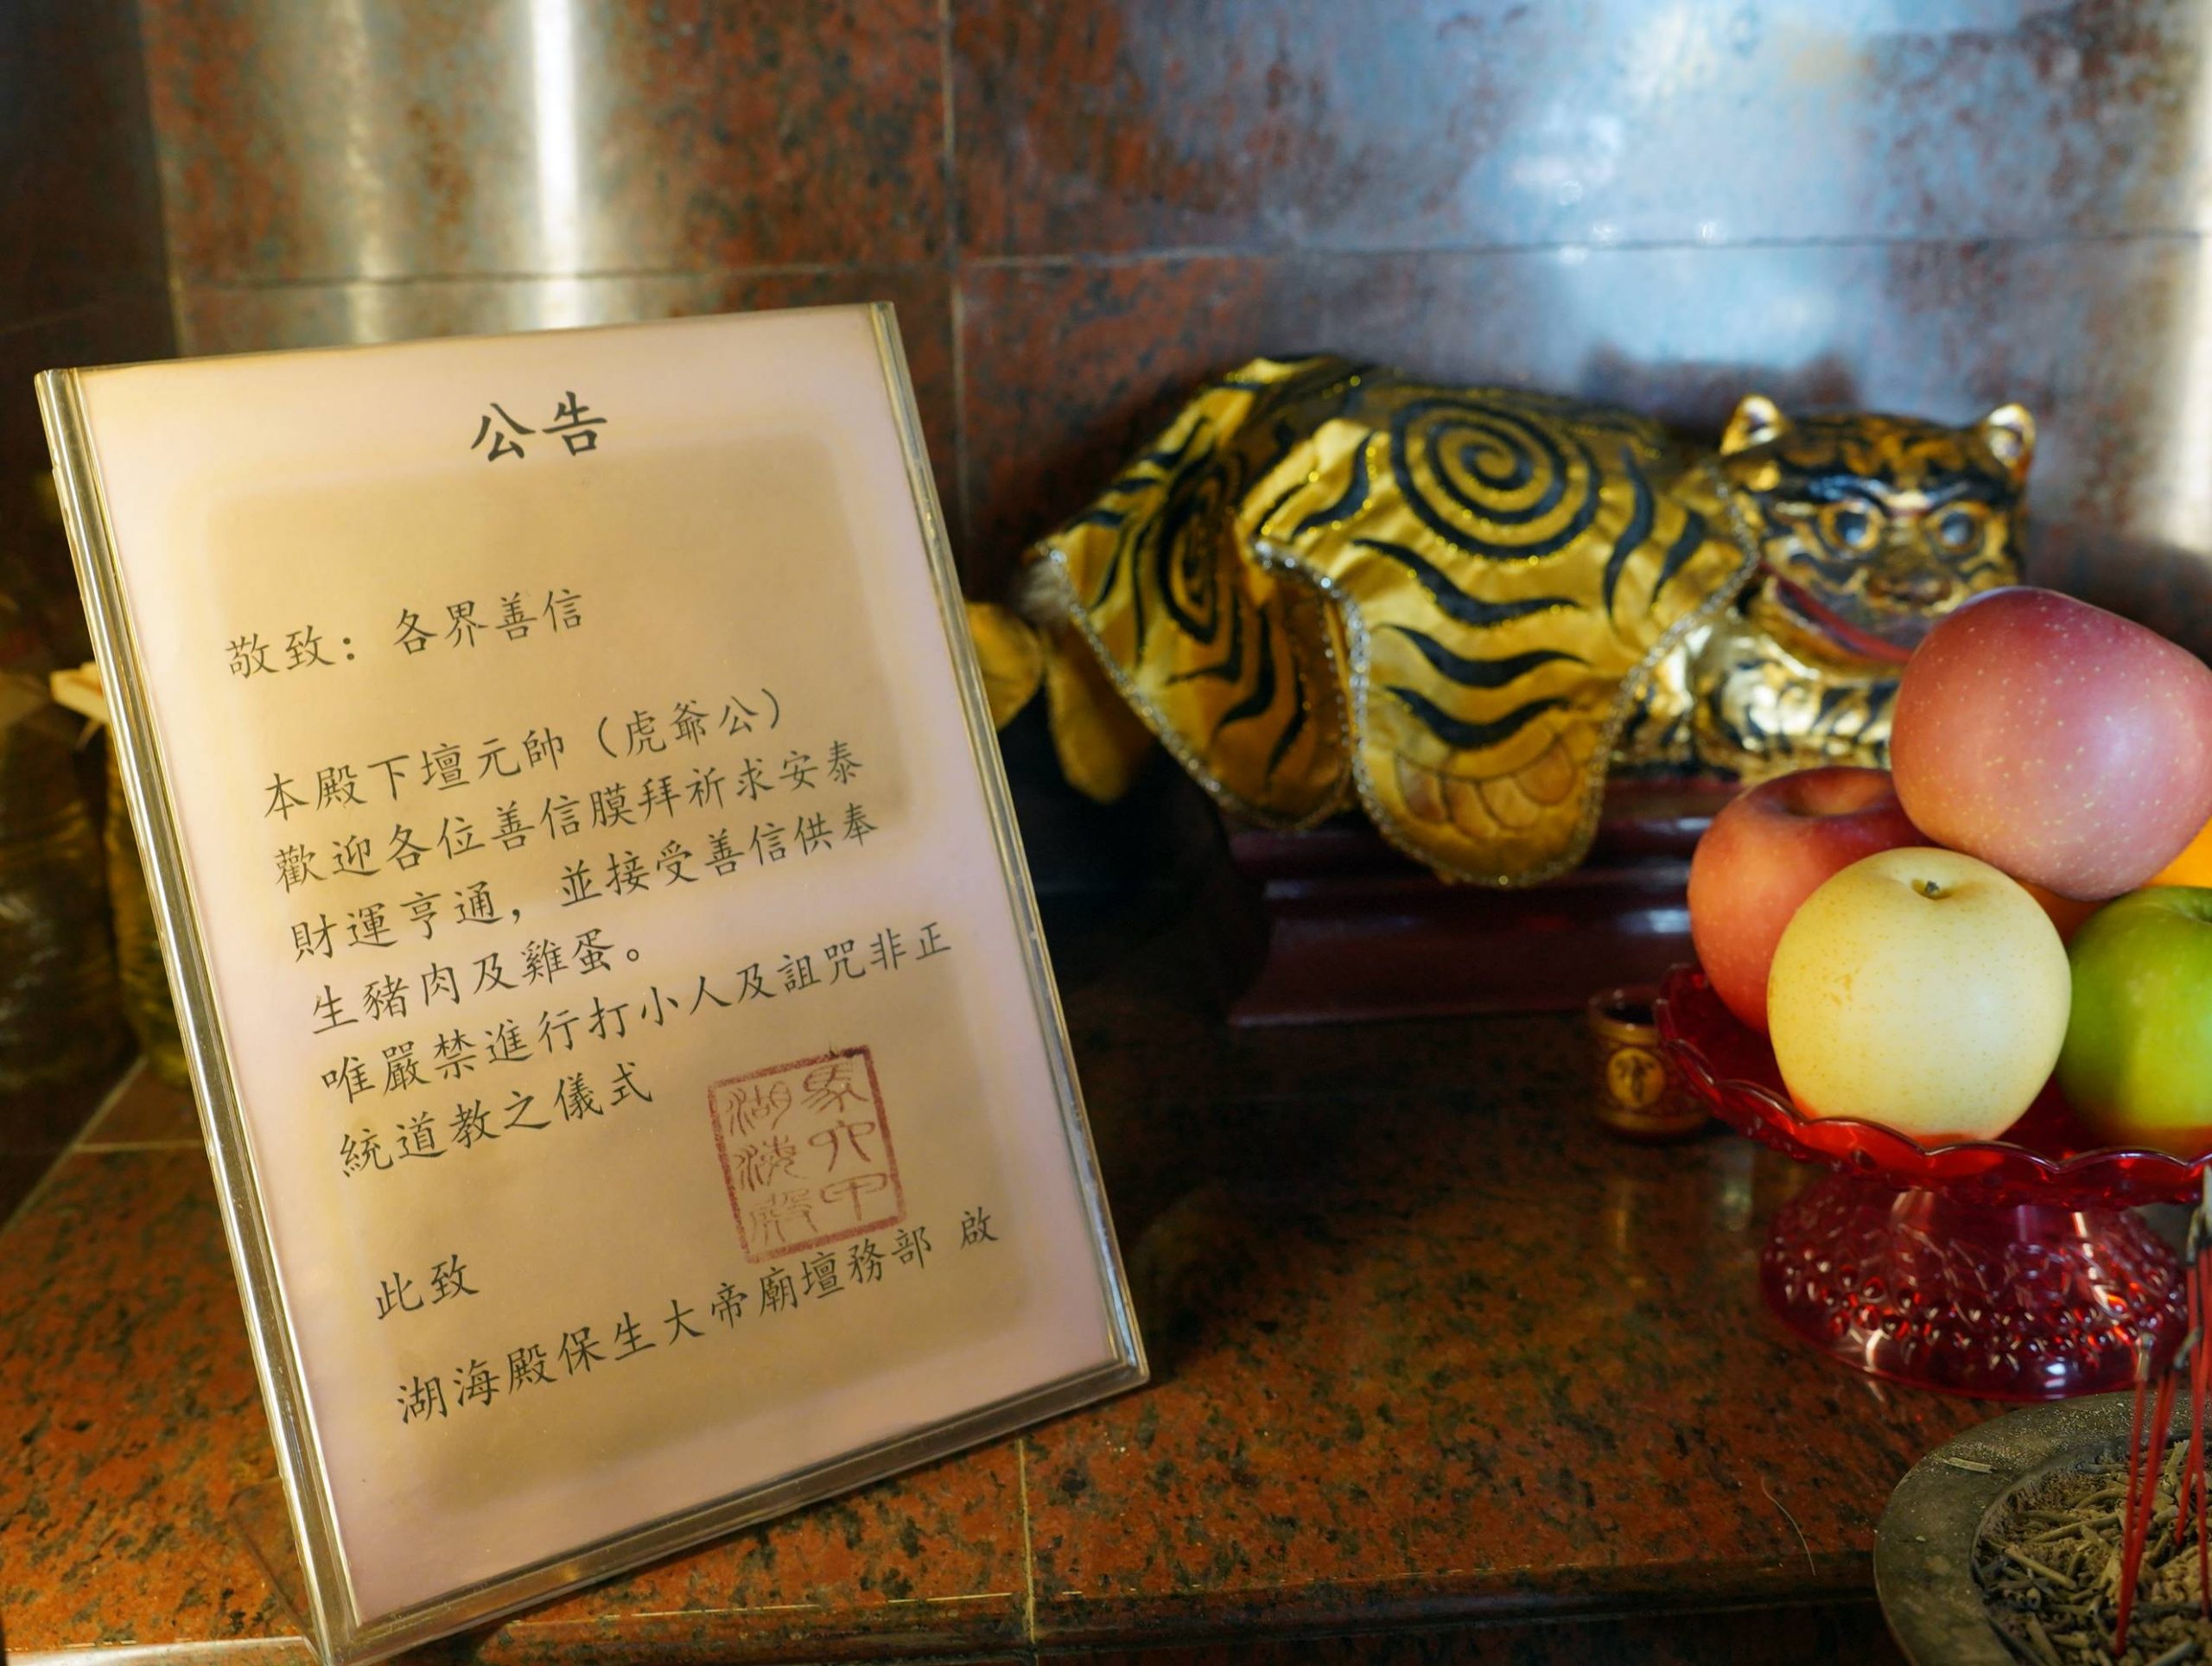 公告
敬致：各界善信
本殿下壇元帥（虎爺公）
歡迎各位善信膜拜祈求安泰
財運亨通，並接受善信供奉
生豬肉及雞蛋。
唯嚴禁進行打小人及詛咒非正
統道教之儀式
湖海殿
此致
湖海殿保生大帝廟壇務部 啟